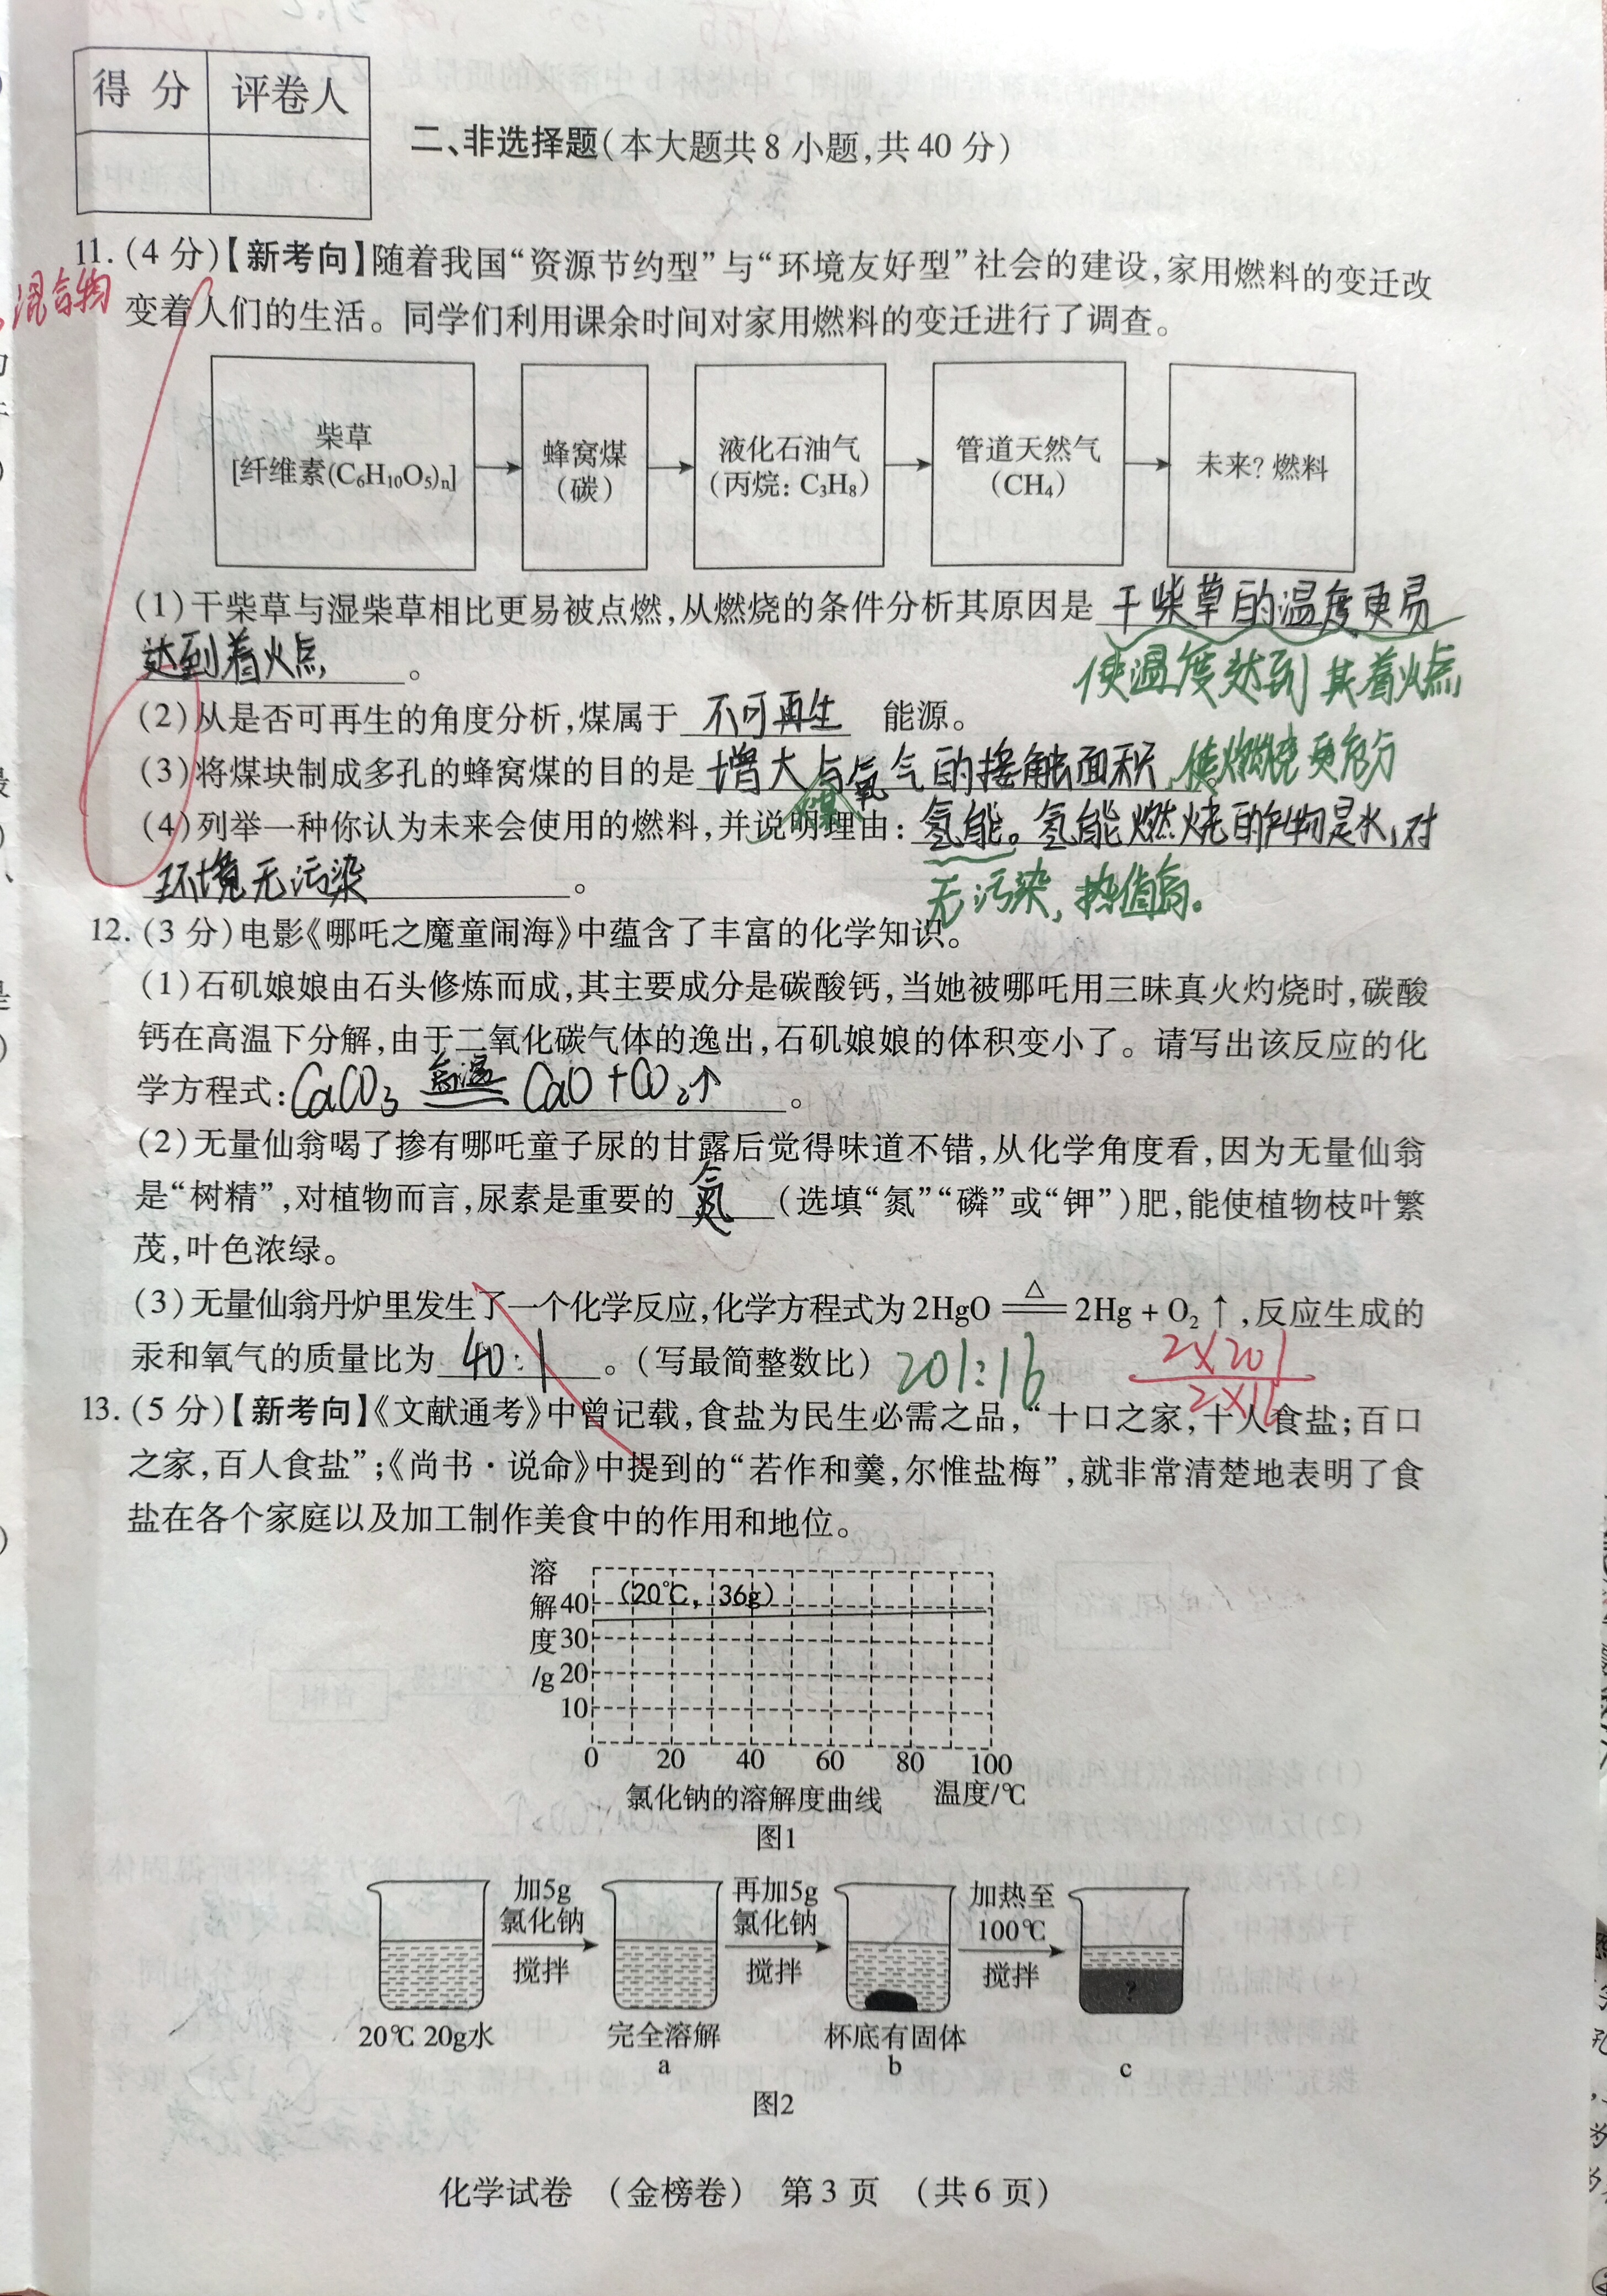 得 分 评卷人
二、非选择题(本大题共8小题,共40分)
11.(4分)【新考向】随着我国“资源节约型”与“环境友好型”社会的建设,家用燃料的变迁改
混合物
变着人们的生活。同学们利用课余时间对家用燃料的变迁进行了调查。
柴草
[纤维素(C₆H₁₀O₅)ₙ]
蜂窝煤
(碳)
液化石油气
(丙烷: C₃H₈)
管道天然气
(CH₄)
未来?燃料
(1)干柴草与湿柴草相比更易被点燃,从燃烧的条件分析其原因是 干柴草的温度更易
达到着火点 。
使温度达到其着火点
(2)从是否可再生的角度分析,煤属于 不可再生 能源。
(3)将煤块制成多孔的蜂窝煤的目的是 增大与氧气的接触面积,使燃烧更充分
煤
(4)列举一种你认为未来会使用的燃料,并说明理由: 氢能。氢能燃烧的产物是水,对
环境无污染 。
无污染,热值高。
12.(3分)电影《哪吒之魔童闹海》中蕴含了丰富的化学知识。
(1)石矶娘娘由石头修炼而成,其主要成分是碳酸钙,当她被哪吒用三昧真火灼烧时,碳酸
钙在高温下分解,由于二氧化碳气体的逸出,石矶娘娘的体积变小了。请写出该反应的化
学方程式: CaCO₃ 高温 CaO + CO₂↑ 。
(2)无量仙翁喝了掺有哪吒童子尿的甘露后觉得味道不错,从化学角度看,因为无量仙翁
是“树精”,对植物而言,尿素是重要的 氮 (选填“氮”“磷”或“钾”)肥,能使植物枝叶繁
茂,叶色浓绿。
(3)无量仙翁丹炉里发生了一个化学反应,化学方程式为2HgO ≜ 2Hg + O₂↑,反应生成的
汞和氧气的质量比为 40:1 。(写最简整数比) 201:16
2×201
2×16
13.(5分)【新考向】《文献通考》中曾记载,食盐为民生必需之品,“十口之家,十人食盐;百口
之家,百人食盐”;《尚书·说命》中提到的“若作和羹,尔惟盐梅”,就非常清楚地表明了食
盐在各个家庭以及加工制作美食中的作用和地位。
溶解度/g
40
30
20
10
(20℃, 36g)
0 20 40 60 80 100
氯化钠的溶解度曲线 温度/℃
图1
加5g
氯化钠
搅拌
再加5g
氯化钠
搅拌
加热至
100℃
搅拌
?
20℃ 20g水 完全溶解 杯底有固体
a b c
图2
化学试卷 (金榜卷) 第3页 (共6页)